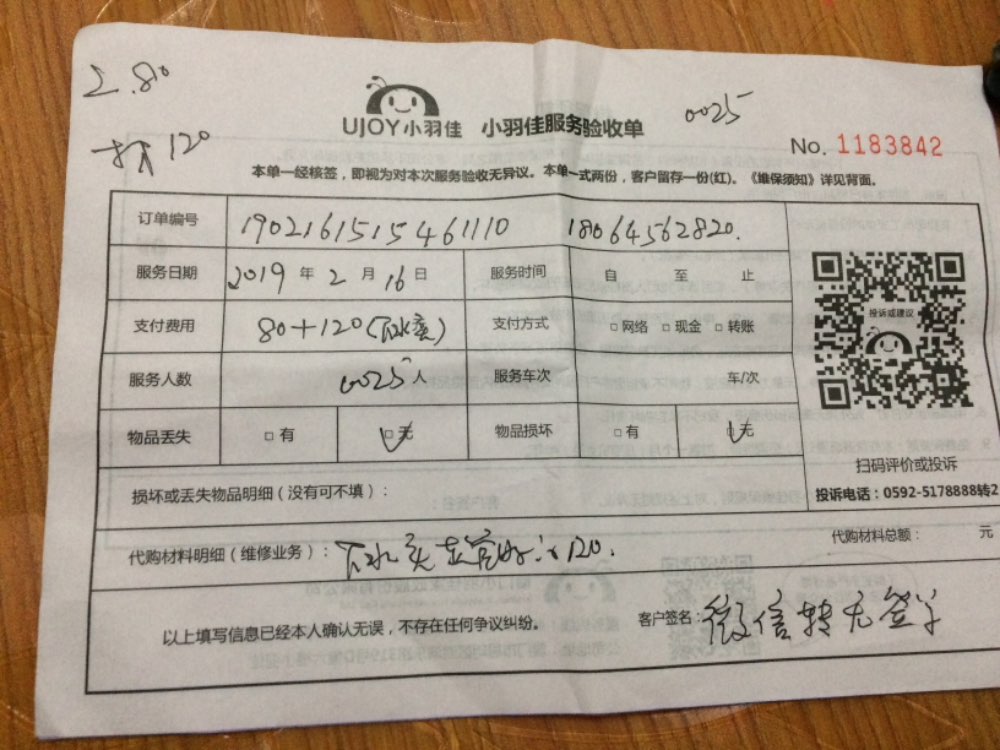 2.80
0025
120
UJOY小羽佳 小羽佳服务验收单
No. 1183842
本单一经核签，即视为对本次服务验收无异议。本单一式两份，客户留存一份(红)。《维保须知》详见背面。
订单编号 1902161515461110 18064562820.
服务日期 2019 年 2 月 16 日 服务时间 自 至 止
支付费用 80+120( 支付方式 □网络 □现金 □转账
投诉或建议
服务人数 0025 人 服务车次 车/次
物品丢失 □有 □无 物品损坏 □有 □无
扫码评价或投诉
投诉电话：0592-5178888转2
损坏或丢失物品明细（没有可不填）：
代购材料明细（维修业务）：下水 120.
代购材料总额： 元
以上填写信息已经本人确认无误，不存在任何争议纠纷。
客户签名：微信转无签字